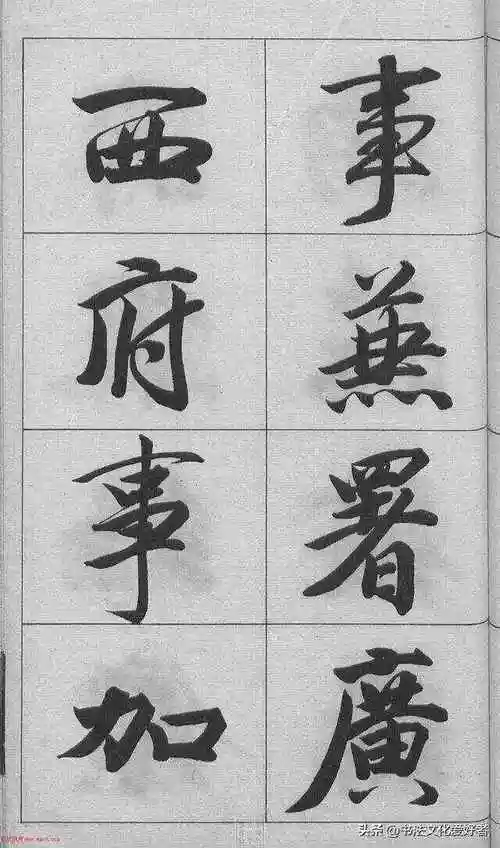 事兼署廣
西府事加
头条@书法文化爱好者